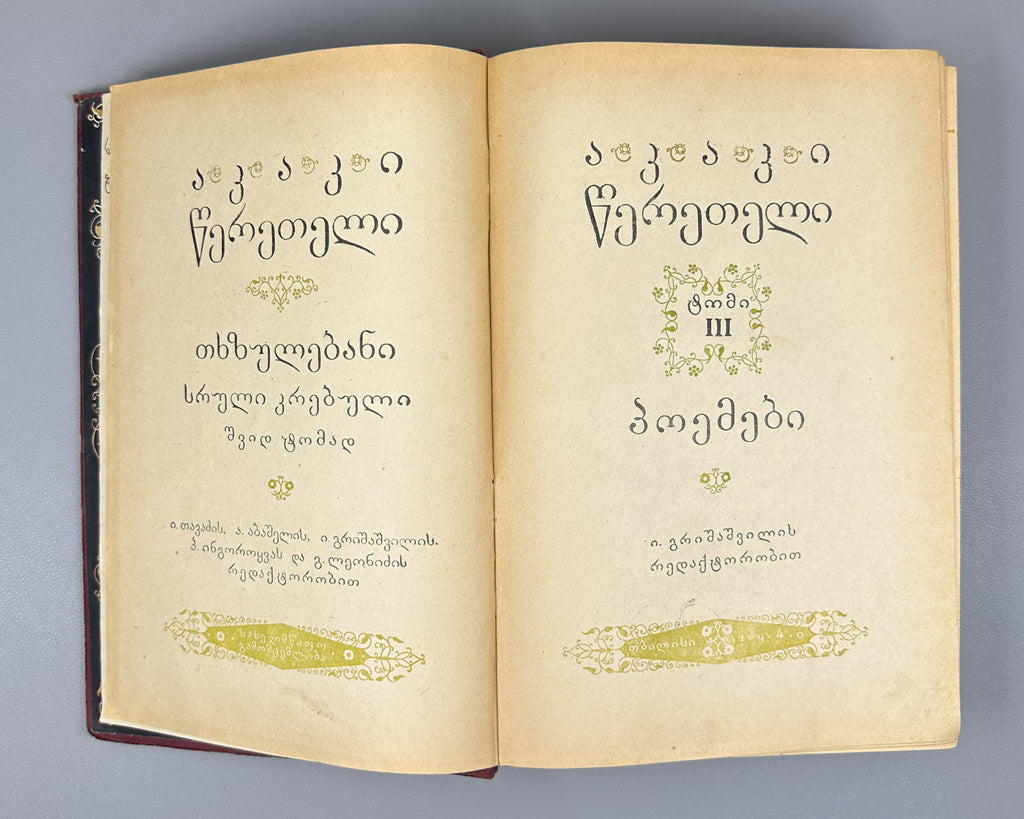 აკაკი
წერეთელი
თხზულებანი
სრული კრებული
შვიდ ტომად
ი. თავაძის, ა. აბაშელის, ი. გრიშაშვილის.
პ. ინგოროყვას და გ. ლეონიძის
რედაქტორობით
სახელმწიფო
გამომცემლობა
აკაკი
წერეთელი
ტომი
III
პოემები
ი. გრიშაშვილის
რედაქტორობით
თბილისი